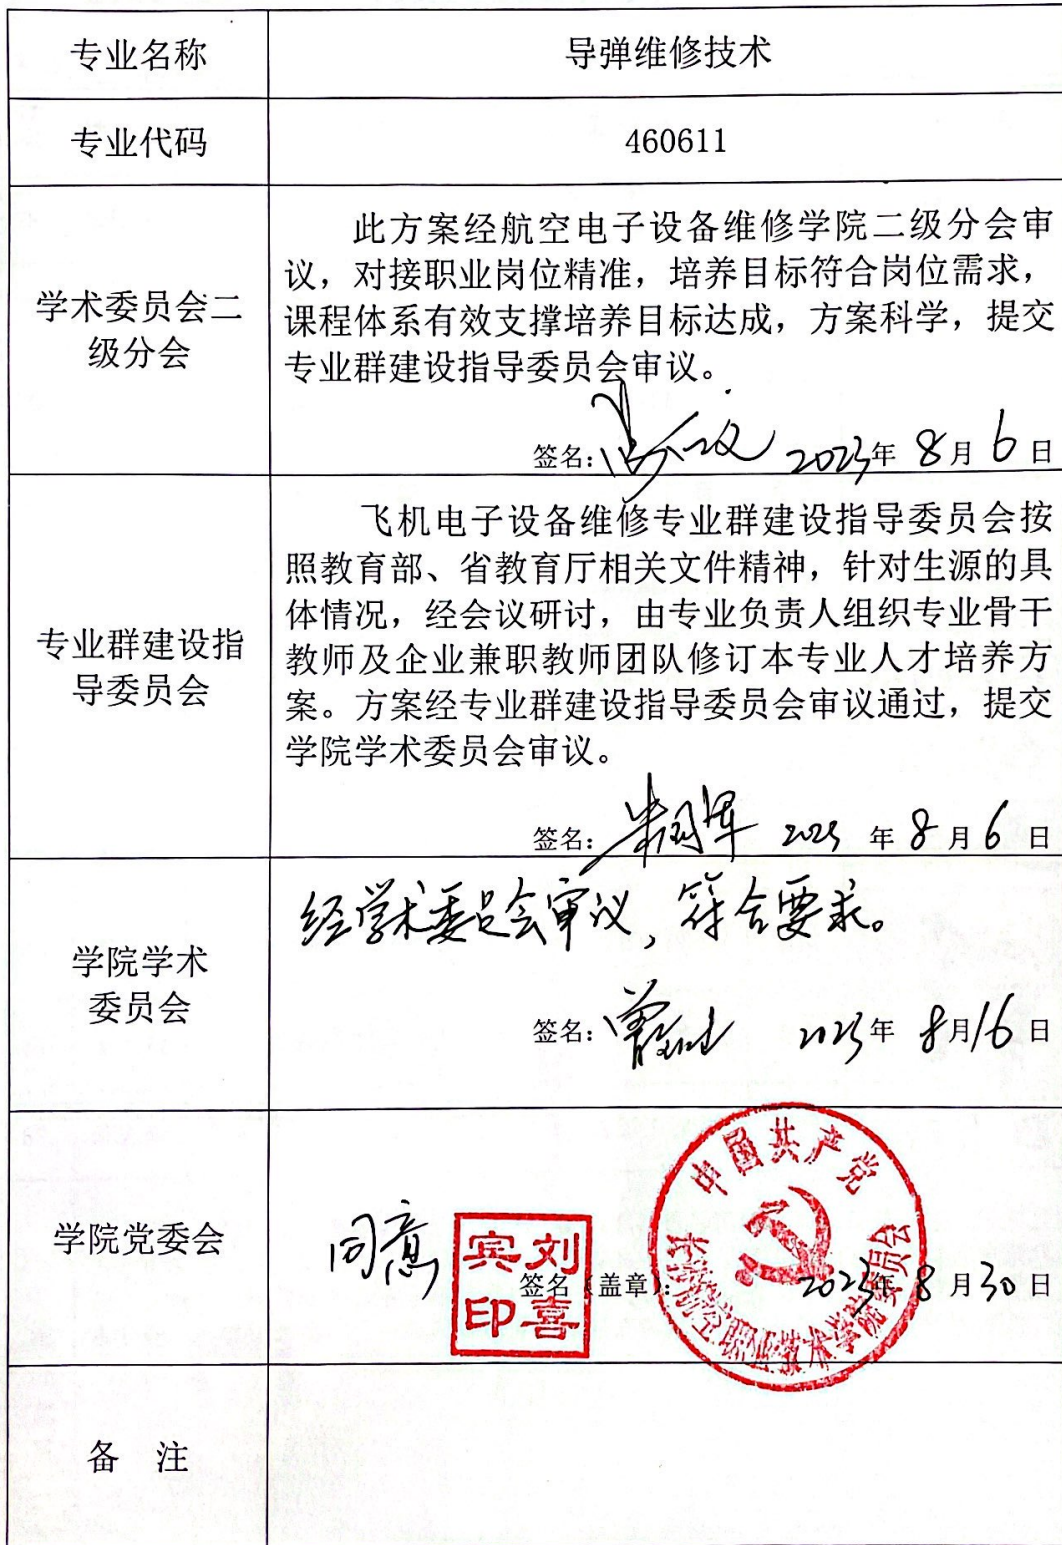 专业名称
导弹维修技术
专业代码
460611
学术委员会二
级分会
此方案经航空电子设备维修学院二级分会审
议，对接职业岗位精准，培养目标符合岗位需求，
课程体系有效支撑培养目标达成，方案科学，提交
专业群建设指导委员会审议。
签名： 2023年 8月 6日
专业群建设指
导委员会
飞机电子设备维修专业群建设指导委员会按
照教育部、省教育厅相关文件精神，针对生源的具
体情况，经会议研讨，由专业负责人组织专业骨干
教师及企业兼职教师团队修订本专业人才培养方
案。方案经专业群建设指导委员会审议通过，提交
学院学术委员会审议。
签名： 2023 年 8月 6 日
学院学术
委员会
经学术委员会审议，符合要求。
签名： 2023年 8月16日
学院党委会
同意
刘喜
宾印
签名（盖章）： 2023年 8月30日
中国共产党
航空职业技术学院委员会
备 注